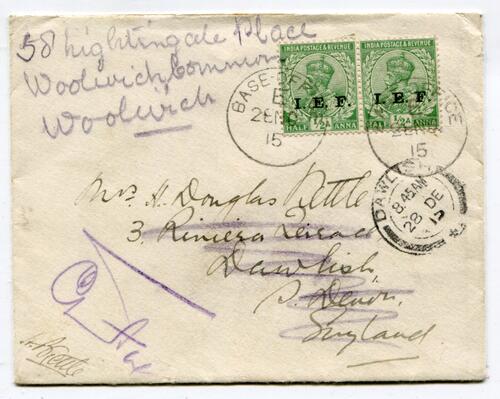 58 Nightingale Place
Woolwich Common
Woolwich
INDIA POSTAGE & REVENUE
I. E. F.
HALF ½A ANNA
INDIA POSTAGE & REVENUE
I. E. F.
½A ANNA
BASE OFFICE
E
2 NO
15
15
DAWLISH
8.45 AM
28 DE
15
Mrs H. Douglas Kettle
3. Riviera Terrace
Dawlish,
S. Devon,
England